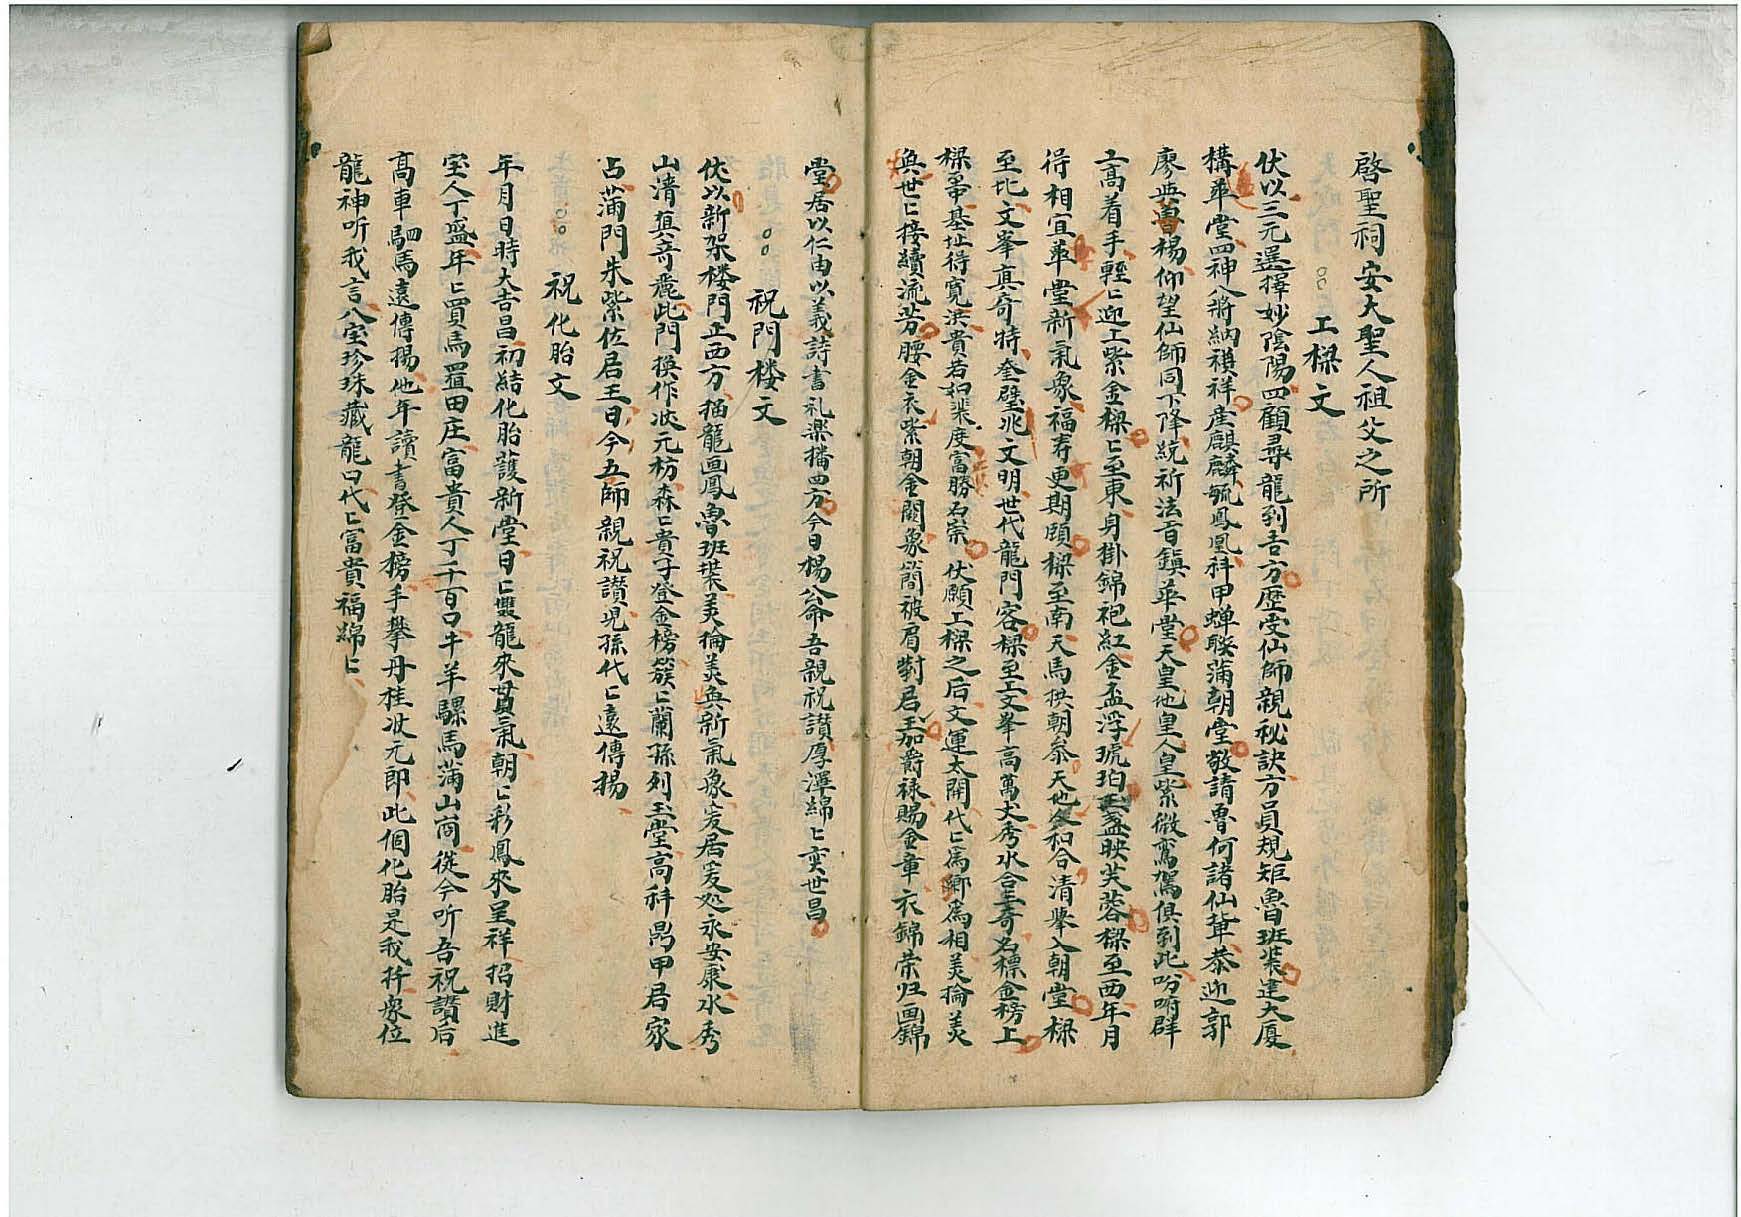 啓聖祠安大聖人祖父之所
上樑文
伏以三元選擇妙陰陽四顧尋龍到吉方歷受仙師親秘訣方員規矩魯班裝建大廈
構華堂四神八將納禎祥産麒麟毓鳳凰科甲蟬聯蒲朝堂敬請魯何諸仙輩恭迎郭
廖與曾楊仰望仙師同下降統祈法言鎮華堂天皇地皇人皇紫微鸞駕俱到此吩咐群
工高着手輕匕迎上紫金樑匕至東身掛錦袍紅金盃浮琥珀玉盞映芙蓉樑至西年月
得相宜華堂新氣象福寿更期頤樑至南天馬拱朝叅天地人和合清舉入朝堂樑
至北文峯真奇特奎璧兆文明世代龍門客樑至上文峯高萬丈秀水合三奇名標金榜上
樑帝基址得寬洪貴若如裴度富勝石崇伏願上樑之后文運太開代匕爲卿爲相美掄美
奐世匕接續流芳腰金衣紫朝金闕象簡被眉對君王加爵禄賜金章衣錦荣归画錦
堂居以仁由以義詩書礼楽播四方今日楊公命吾親祝讃厚澤綿匕奕世昌
祝門楼文
伏以新架楼門正西方描龍画鳳魯班裝美掄美奐新氣象爰居爰処永安康水秀
山清真奇麗此門換作状元枋森匕貴子登金榜簇匕蘭孫列玉堂高科鼎甲君家
占蒲門朱紫佐君王日今五師親祝讃児孫代匕遠傳揚
祝化胎文
年月日時大吉昌初結化胎護新堂日匕雙龍來貫氣朝匕彩鳳來呈祥招財進
宝人丁盛年匕買馬置田庄富貴人丁千百口牛羊騾馬蒲山崗從今听吾祝讃后
高車駟馬遠傳揚他年讀書登金榜手攀丹桂状元郎此個化胎是我扦衆位
龍神听我言八宝珍珠藏龍口代匕富貴福綿匕